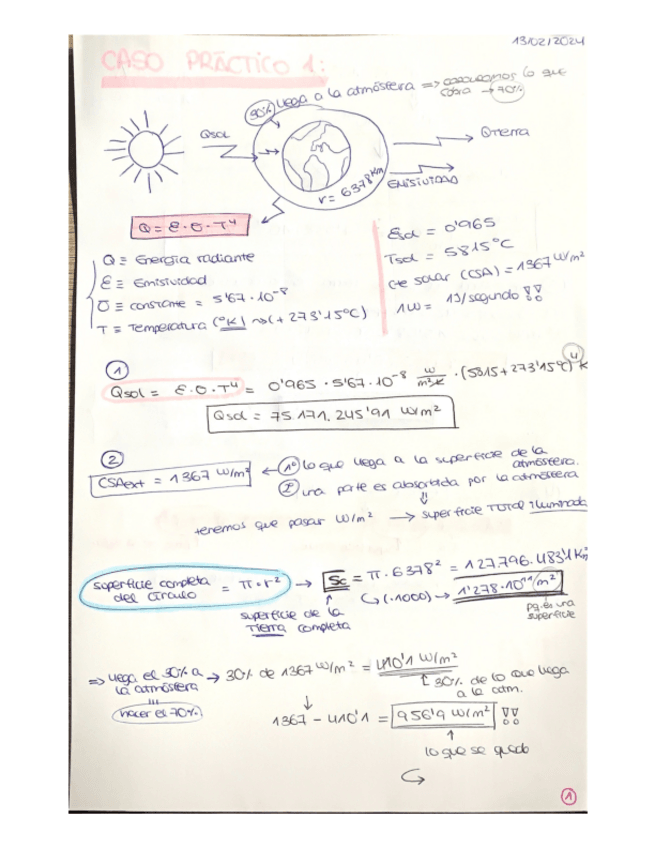 13/02/2024
CASO PRÁCTICO 1:
30% llega a la atmósfera => lo que
→ 70%
Qsol
QTierra
r = 6378 Km
EMISIVIDAD
Q = Ɛ·σ·T⁴
Q ≡ Energía radiante
Ɛ ≡ Emisividad
σ ≡ constante = 5'67·10⁻⁸
T ≡ Temperatura (°K) ~> (+ 273'15°C)
Ɛsol = 0'965
Tsol = 5815°C
cte solar (CSA) = 1367 W/m²
1W = 1J/segundo !!
①
Qsol = Ɛ·σ·T⁴ = 0'965 · 5'67·10⁻⁸ W/m²K · (5815+273'15°C)⁴ K
Qsol = 75171.245'91 W/m²
②
CSAext = 1367 W/m² ← 1º lo que llega a la superficie de la atmósfera.
2º una parte es absorbida por la atmósfera
tenemos que pasar W/m² → superficie TOTAL iluminada
superficie completa del círculo = π·r² → Sc = π·6378² = 127.796.483'4 Km²
↳ (·1000) → 1'278·10¹⁴ m²
superficie de la Tierra completa
pq es una superficie
=> llega el 30% a la atmósfera → 30% de 1367 W/m² = 410'1 W/m²
30% de lo que llega a la atm.
hacer el 70%
1367 - 410'1 = 956'9 W/m² !!
lo que se quedo
1